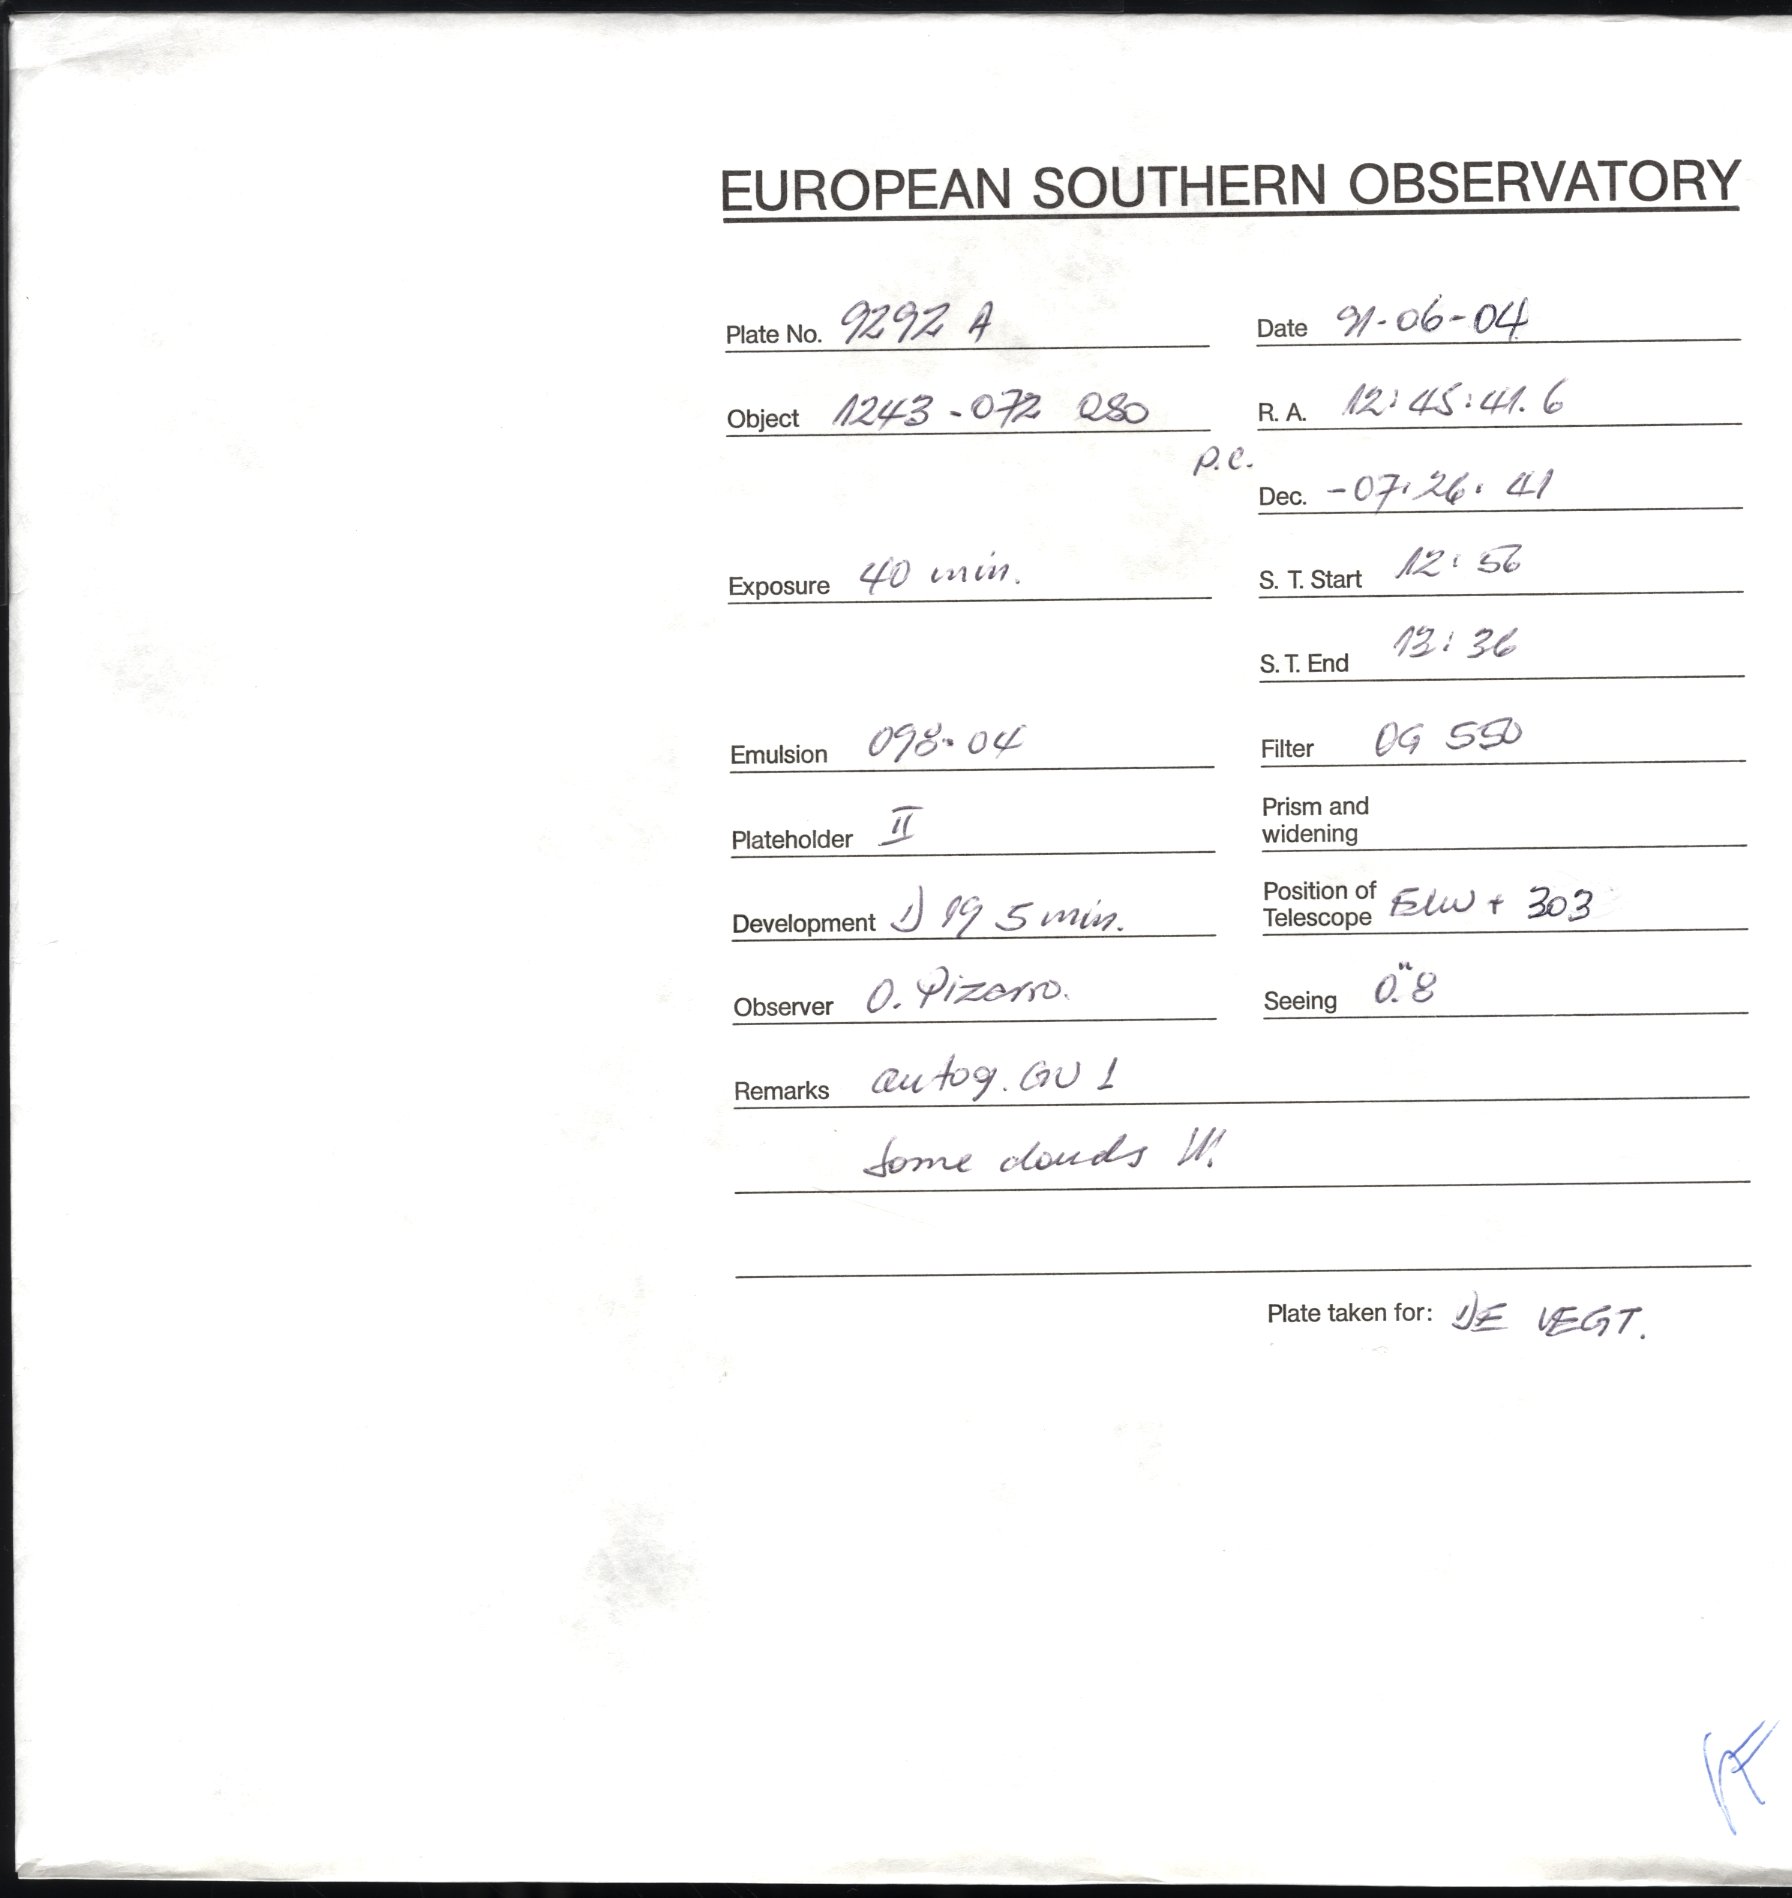 EUROPEAN SOUTHERN OBSERVATORY
Plate No. 9292 A
Date 91-06-04
Object 1243-072 QSO
R. A. 12:45:41.6
p.c.
Dec. -07:26:41
Exposure 40 min.
S. T. Start 12:56
S. T. End 13:36
Emulsion 098-04
Filter OG 550
Plateholder II
Prism and
widening
Development D 19 5 min.
Position of
Telescope ELW + 303
Observer O. Pizarro.
Seeing 0."8
Remarks autog. GU 1
Some clouds !!!
Plate taken for: DE VEGT.